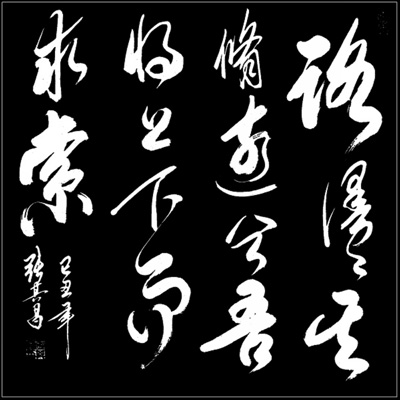 路漫漫其
脩遠兮吾
将上下而
求索
己丑年
張其昌